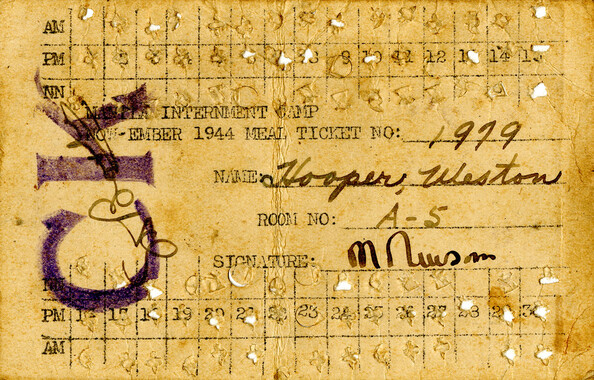 AM
PM 8 9 10 11 12 13 14 15
NN
MANILA INTERNMENT CAMP
NOVEMBER 1944 MEAL TICKET NO: 1979
NAME: Hooper, Weston
ROOM NO: A-5
SIGNATURE:
NN
PM 16 17 18 19 20 21 22 23 24 25 26 27 28 29 30
AM